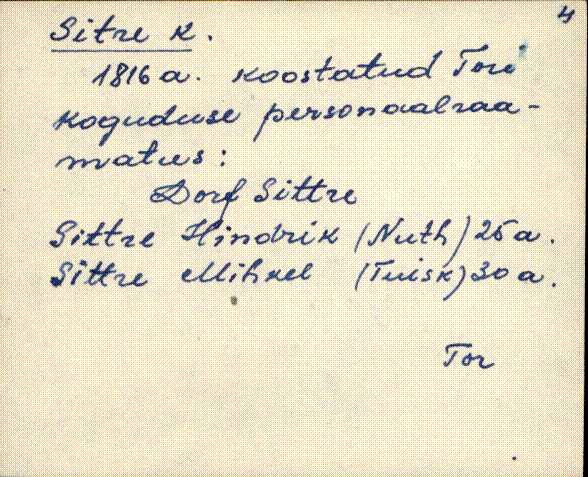 4
Sitre k.
1816 a. koostatud Tori
koguduse personaalraa-
matus:
Dorf Sittre
Sittre Hindrik (Nuth) 25 a.
Sittre Mihkel (Tuisk) 30 a.
Tor